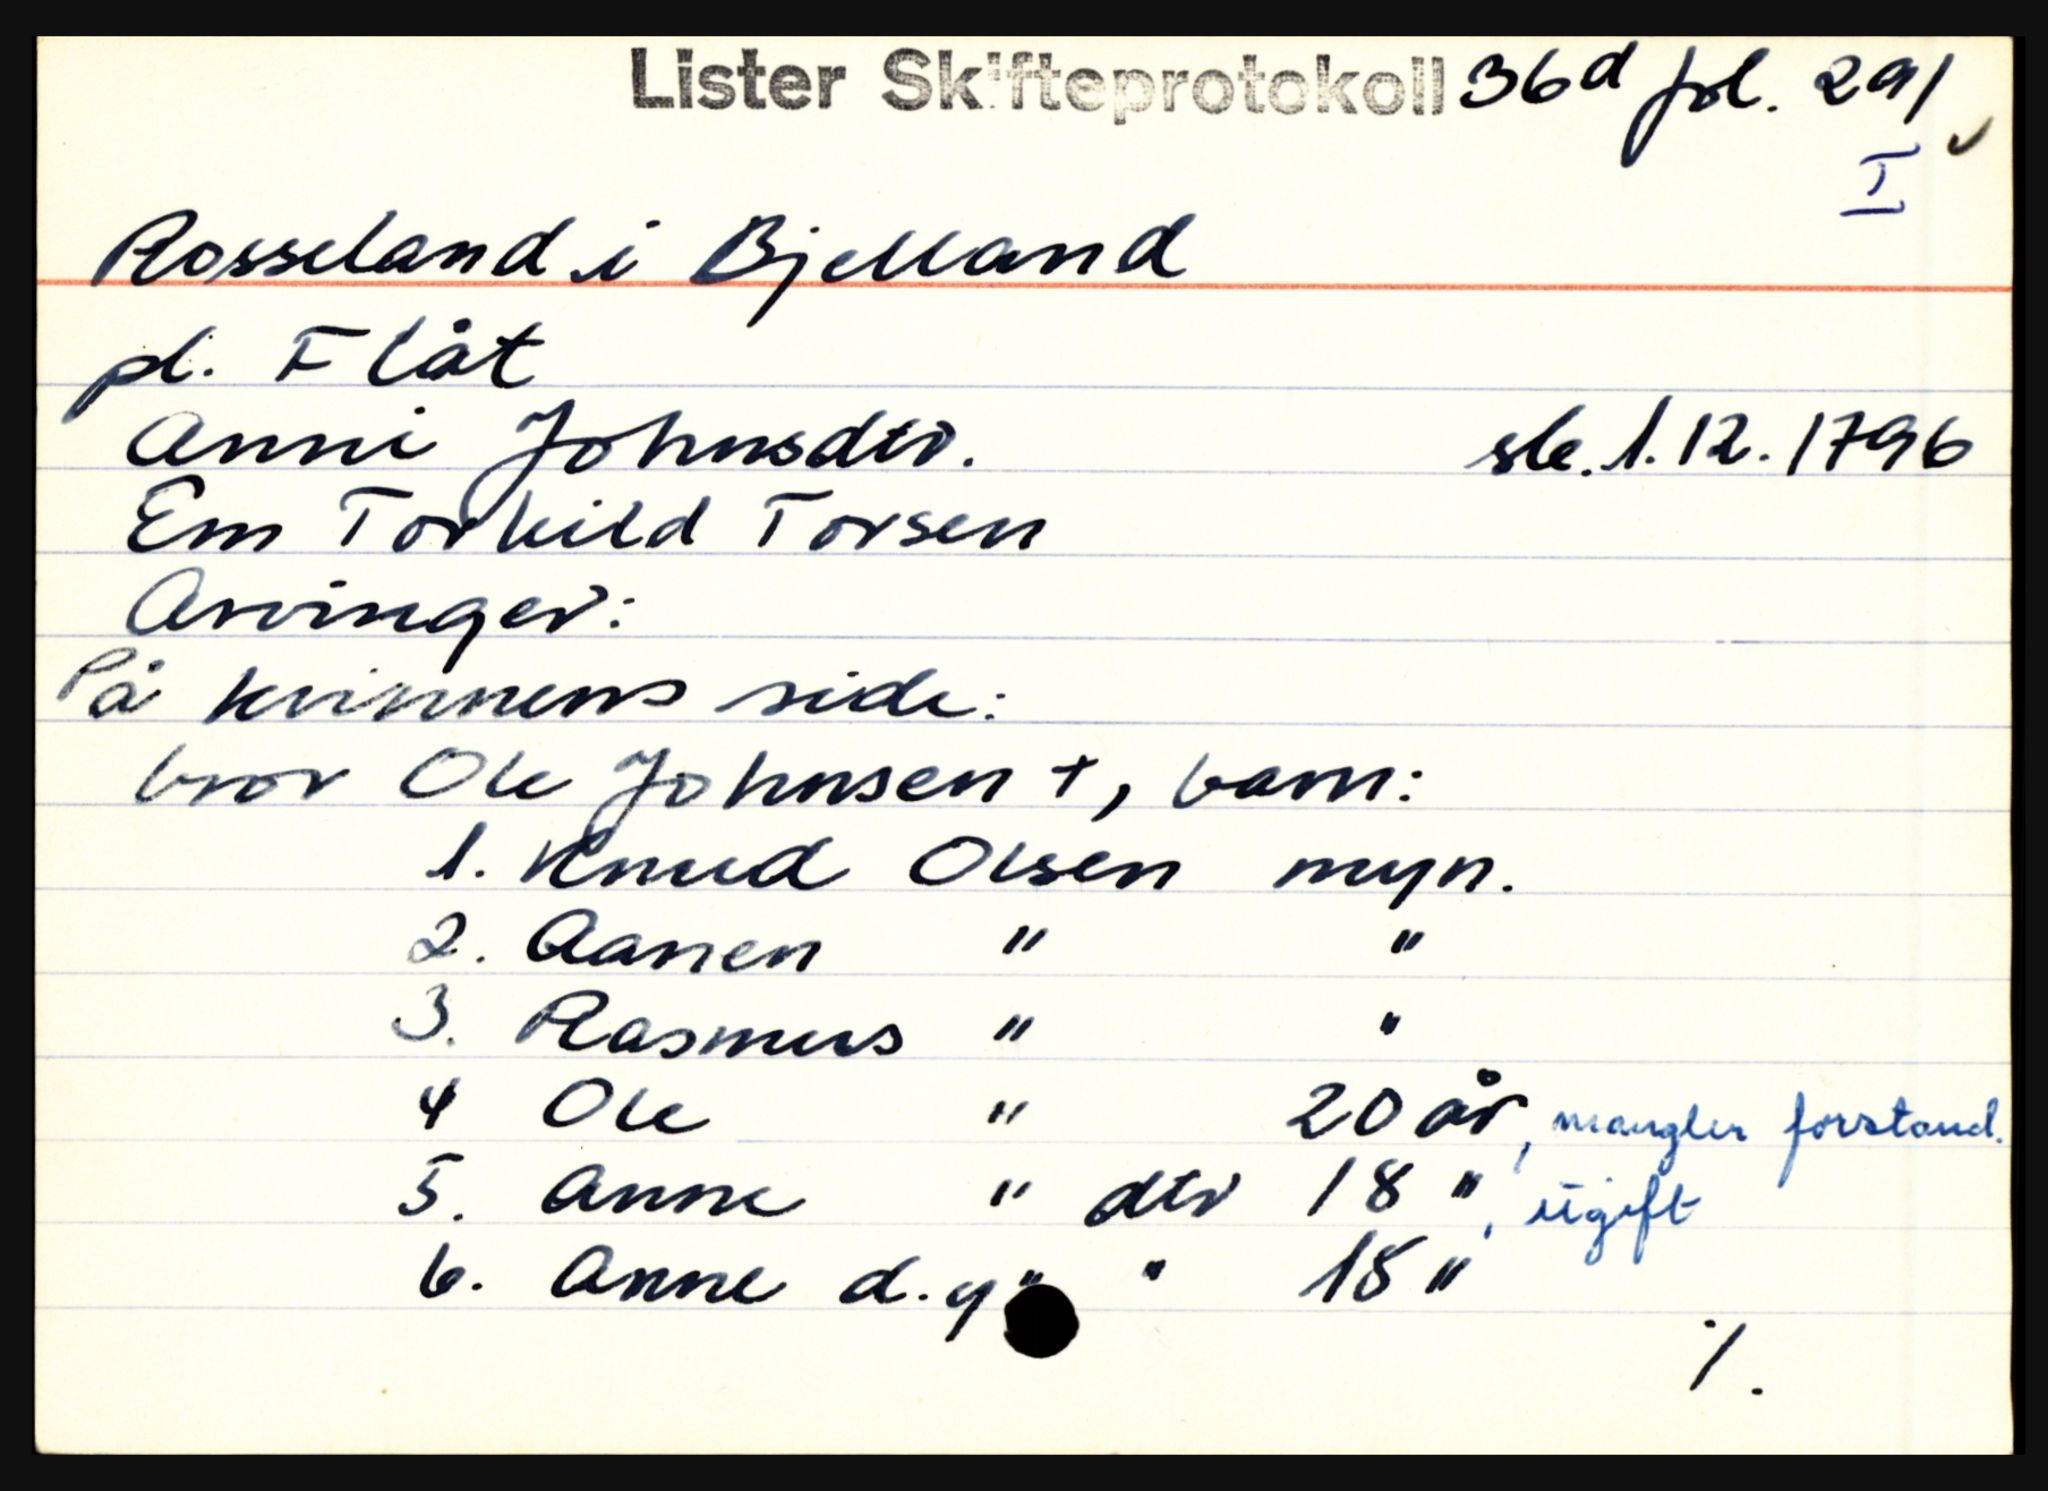 Lister Skifteprotokoll 36d fol. 291
I
Rosseland i Bjelland
pl. Flåt
Anni Johnsdtr. sle. 1.12.1796
Em Torkild Torsen
Arvinger:
På kvinnens side:
bror Ole Johnsen +, barn:
1. Knud Olsen myn.
2. Aanen " "
3. Rasmus " "
4 Ole " 20 år, mangler forstand.
5. Anne " dtr 18 ", ugift
6. Anne d.y " " 15 "
./.